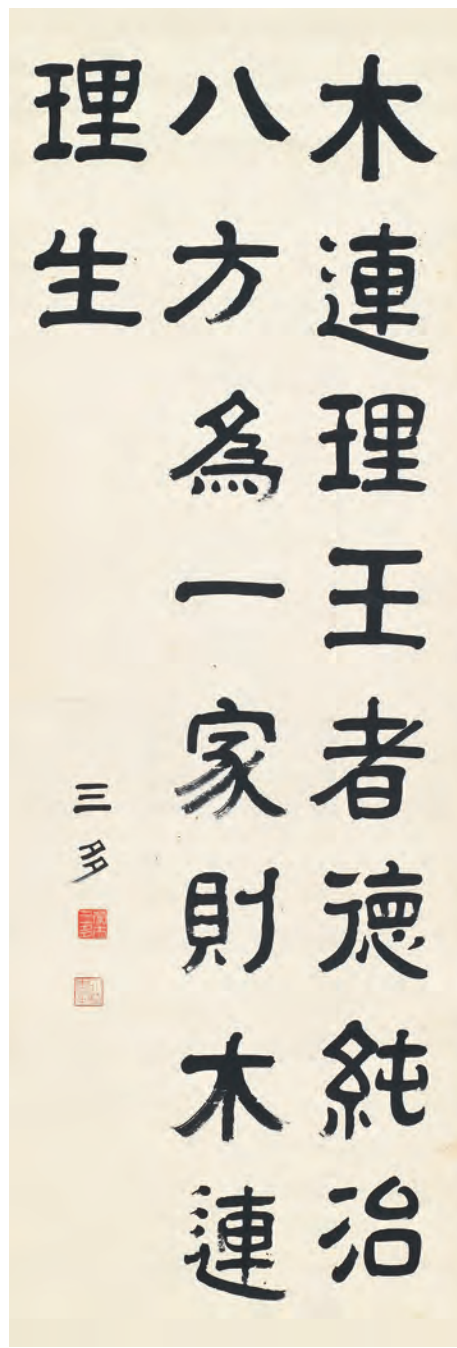 木連理王者德純洽
八方為一家則木連
理生
三多